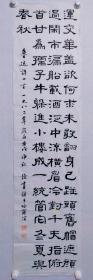 運交華蓋欲何求未敢翻身已碰頭舊帽遮顏
過鬧市漏船載酒泛中流橫眉冷對千夫指俯
首甘為孺子牛躲進小樓成一統管它冬夏與
春秋
魯迅詩一首一九八二年